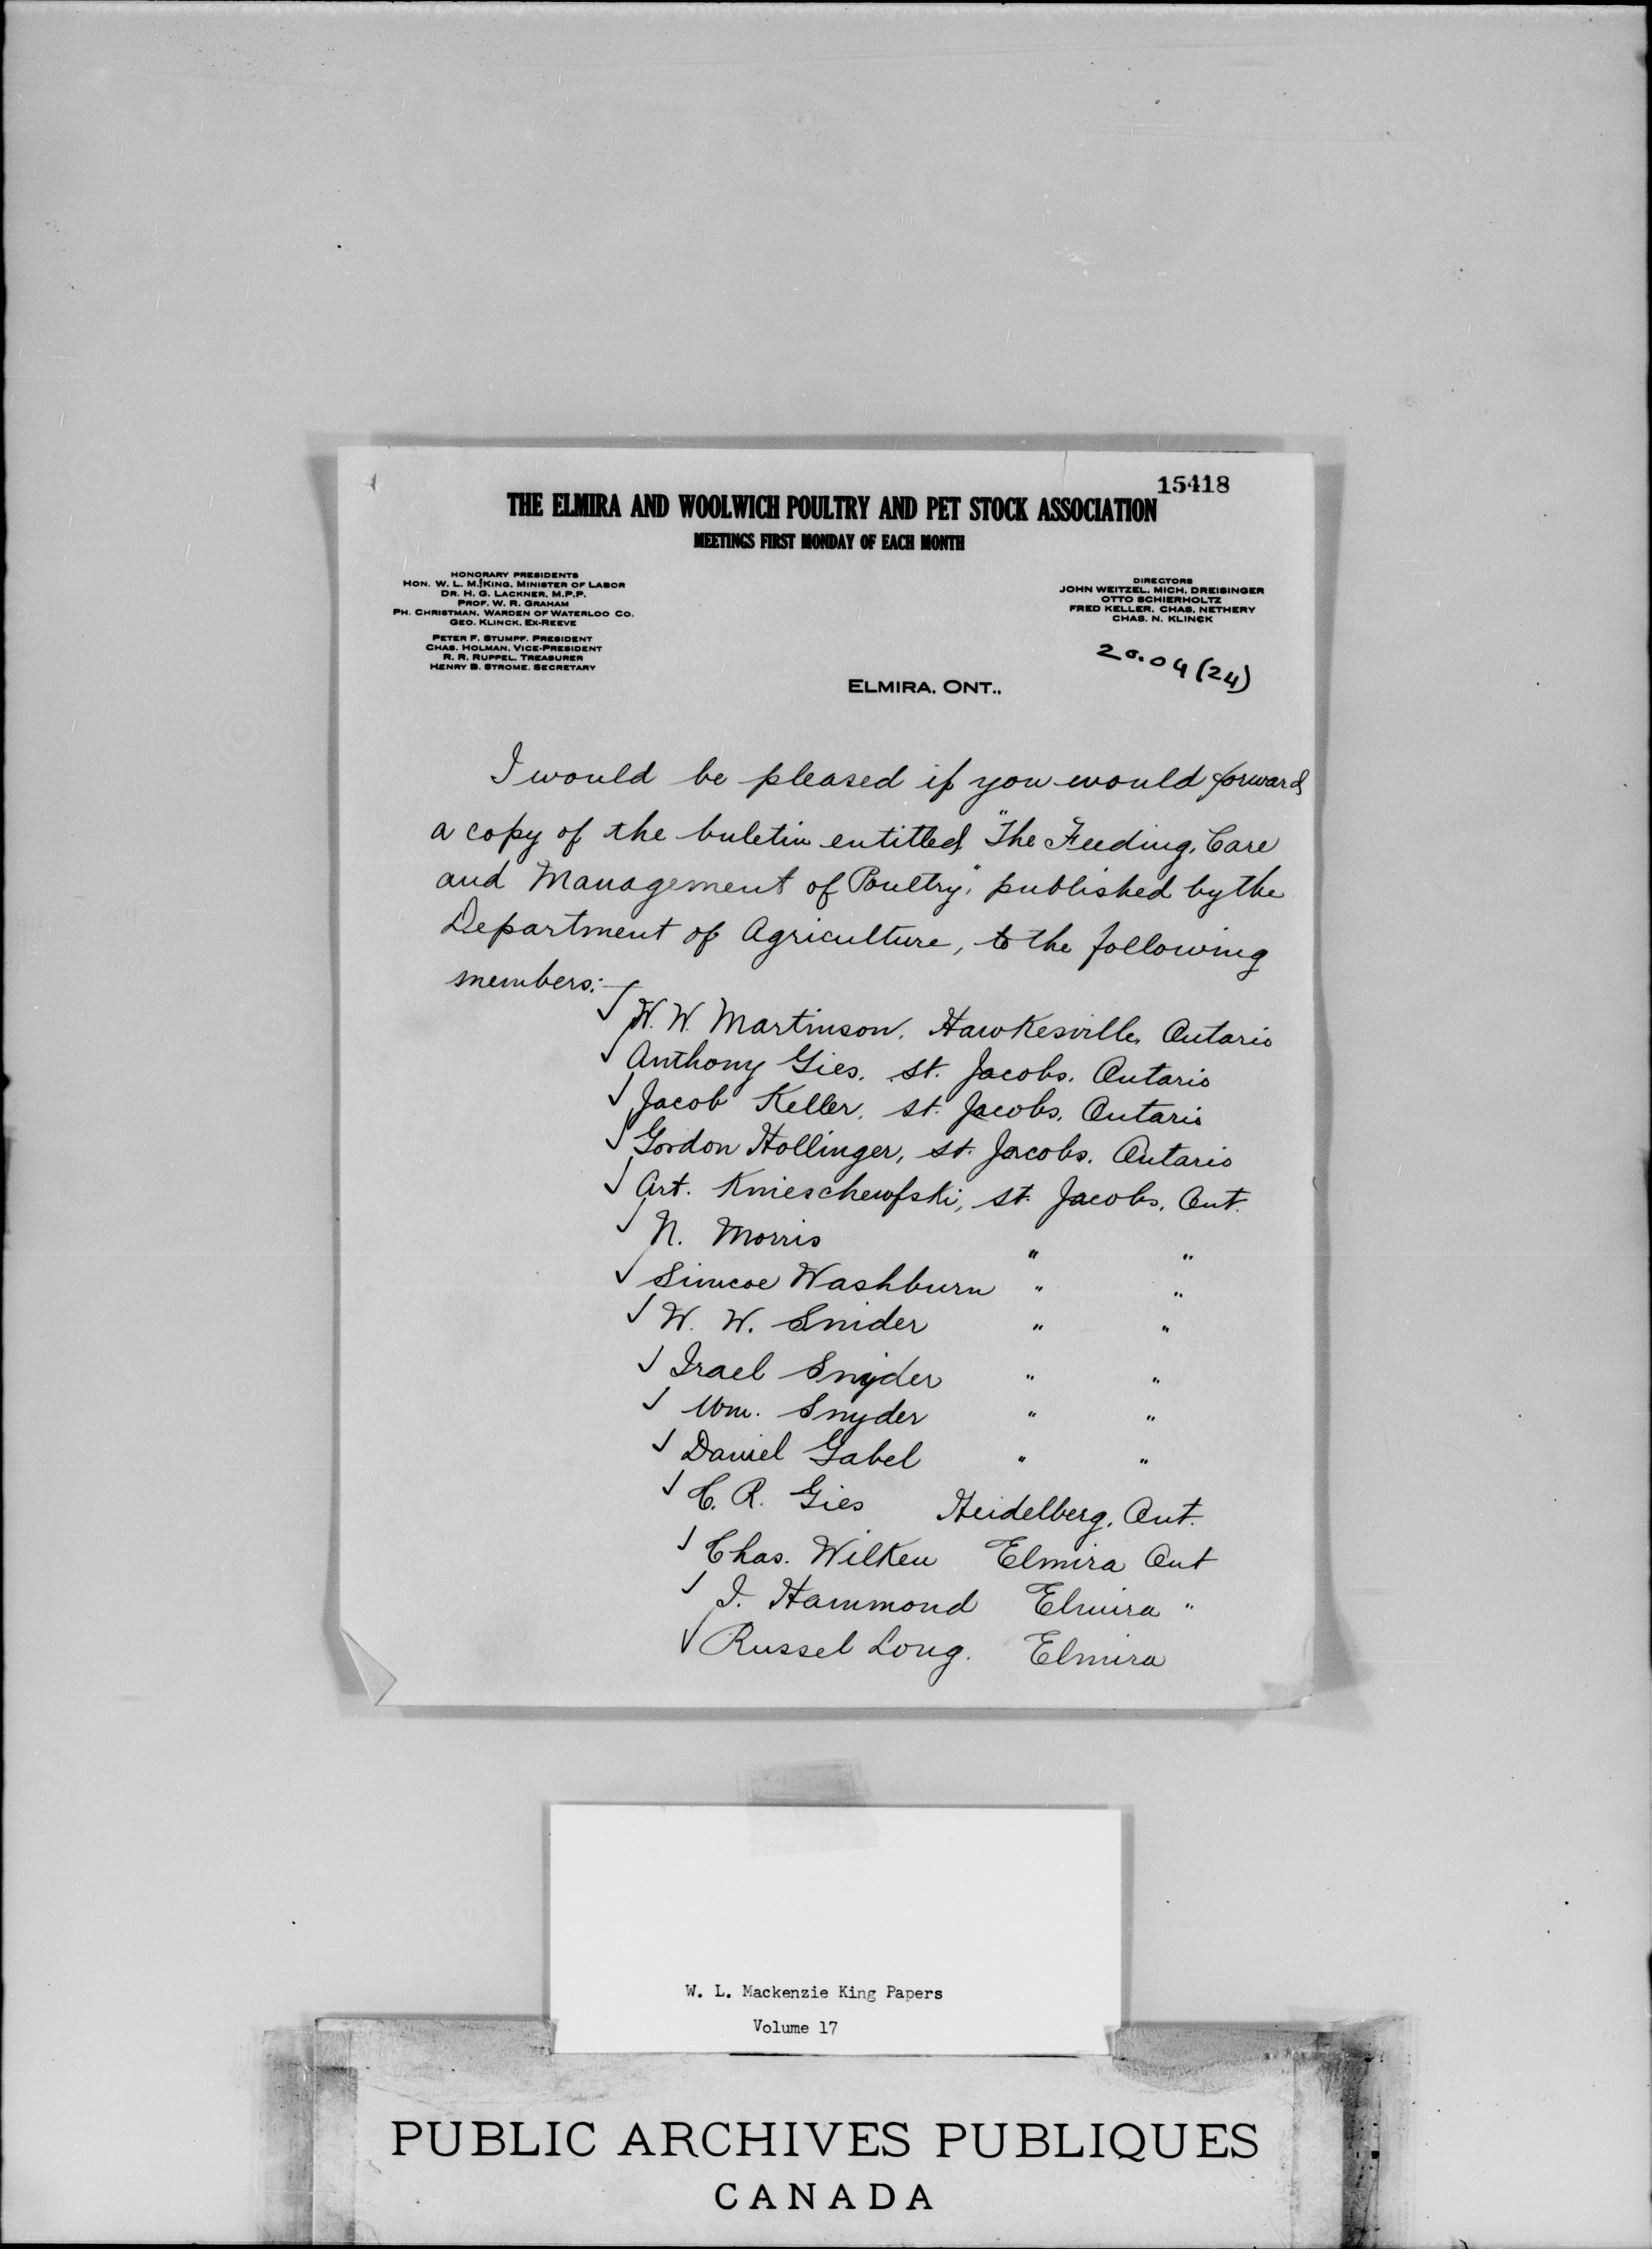 15418
THE ELMIRA AND WOOLWICH POULTRY AND PET STOCK ASSOCIATION
MEETINGS FIRST MONDAY OF EACH MONTH
HONORARY PRESIDENTS
HON. W. L. M. KING, MINISTER OF LABOR
DR. H. G. LACKNER, M.P.P.
PROF. W. R. GRAHAM
PH. CHRISTMAN, WARDEN OF WATERLOO CO.
GEO. KLINCK, EX-REEVE
PETER F. STUMPF, PRESIDENT
CHAS. HOLMAN, VICE-PRESIDENT
R. R. RUPPEL, TREASURER
HENRY B. STROME, SECRETARY
DIRECTORS
JOHN WEITZEL, MICH. DREISINGER
OTTO SCHIERHOLTZ
FRED KELLER, CHAS. NETHERY
CHAS. N. KLINCK
20.04 (24)
ELMIRA, ONT.,
I would be pleased if you would forward
a copy of the buletin entitled "The Feeding, Care
and Management of Poultry," published by the
Department of Agriculture, to the following
members:—
✓ W. W. Martinson, Hawkesville, Ontario
✓ Anthony Gies, St. Jacobs, Ontario
✓ Jacob Keller, St. Jacobs, Ontario
✓ Gordon Hollinger, St. Jacobs, Ontario
✓ Art. Knieschewski, St. Jacobs, Ont.
✓ N. Morris " "
✓ Simcoe Washburn " "
✓ W. W. Snider " "
✓ Irael Snyder " "
✓ Wm. Snyder " "
✓ Daniel Gabel " "
✓ C. R. Gies Heidelberg, Ont.
✓ Chas. Wilken Elmira Ont
✓ I. Hammond Elmira "
✓ Russel Long. Elmira
W. L. Mackenzie King Papers
Volume 17
PUBLIC ARCHIVES PUBLIQUES
CANADA